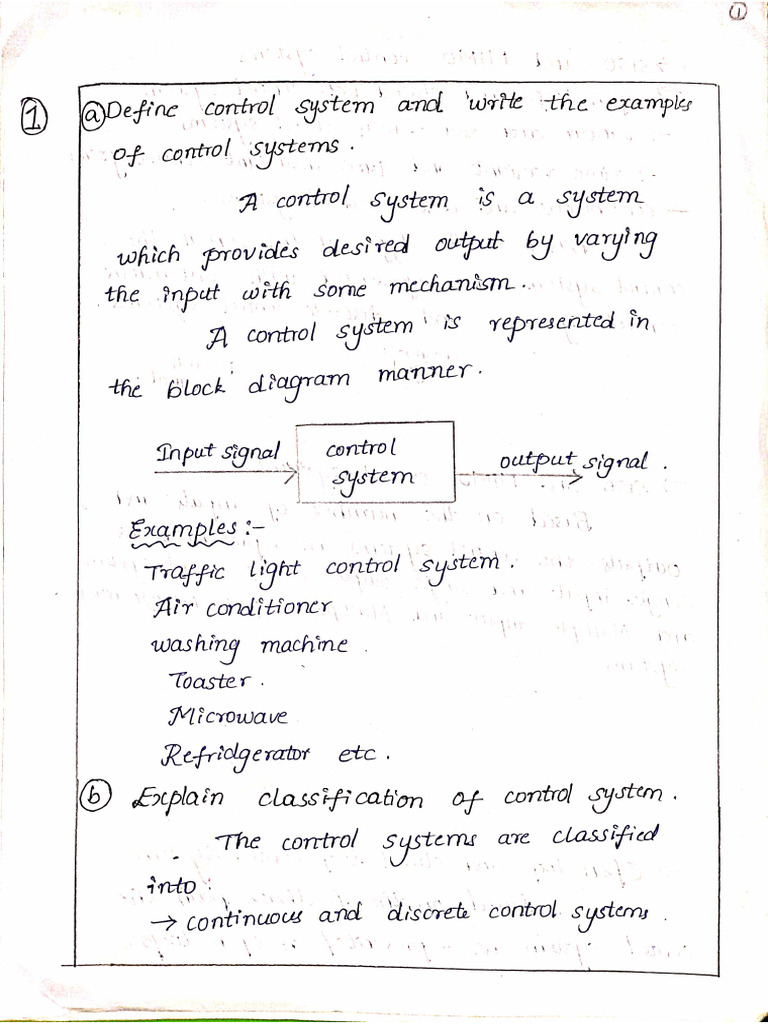 ①
① ⓐ Define control system and write the examples
of control systems.
A control system is a system
which provides desired output by varying
the input with some mechanism.
A control system is represented in
the block diagram manner.
Input signal control system output signal.
Examples :-
Traffic light control system.
Air conditioner
washing machine.
Toaster.
Microwave
Refridgerator etc.
ⓑ Explain classification of control system.
The control systems are classified
into:
→ continuous and discrete control systems.